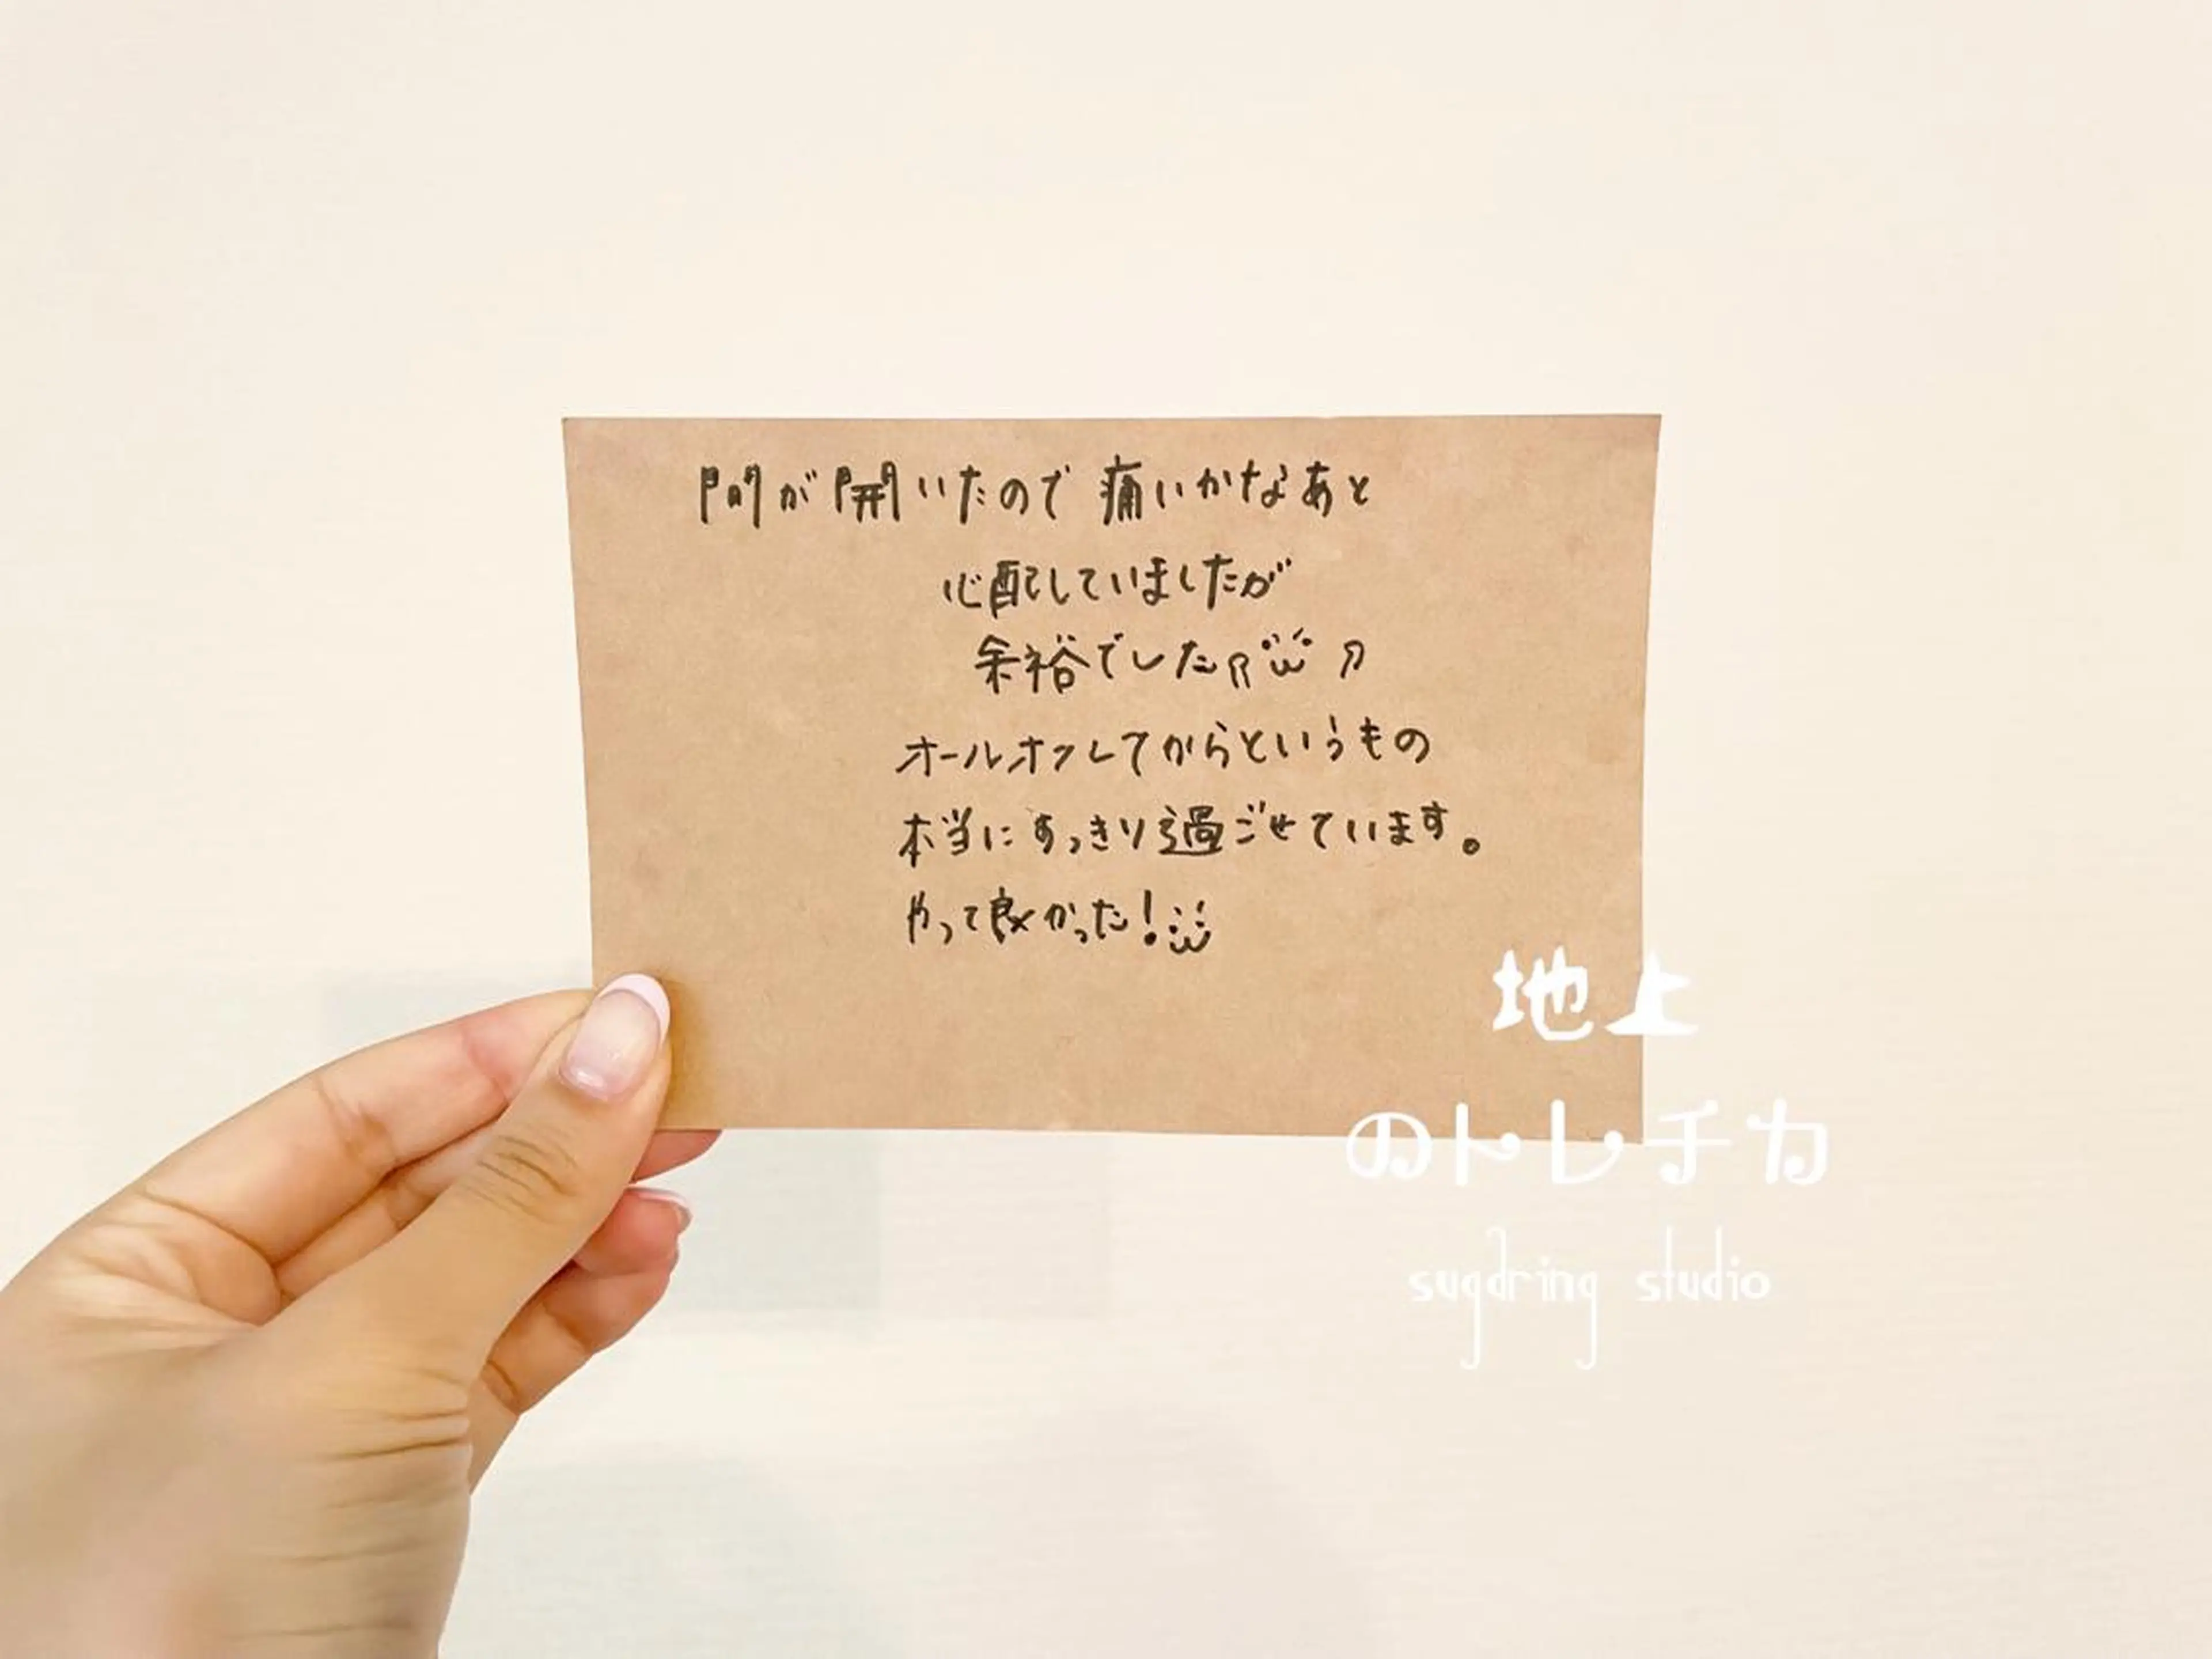 間が開いたので 痛いかなあと
心配していましたが
余裕でした
オールオフしてからというもの
本当にすっきり過ごせています。
やって良かった!
地上
のトレチカ
sugaring studio